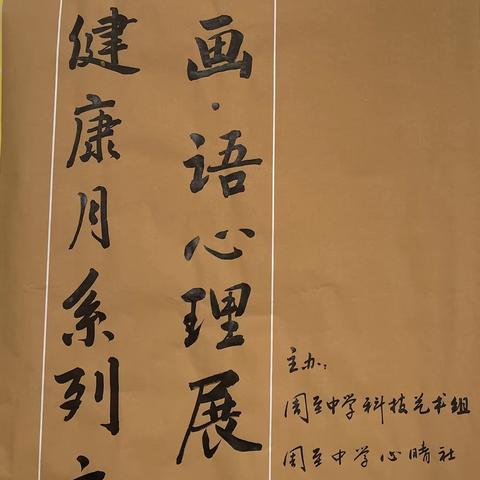 健康月系列
画·语心理展
主办：
周至中学科技艺术组
周至中学心晴社